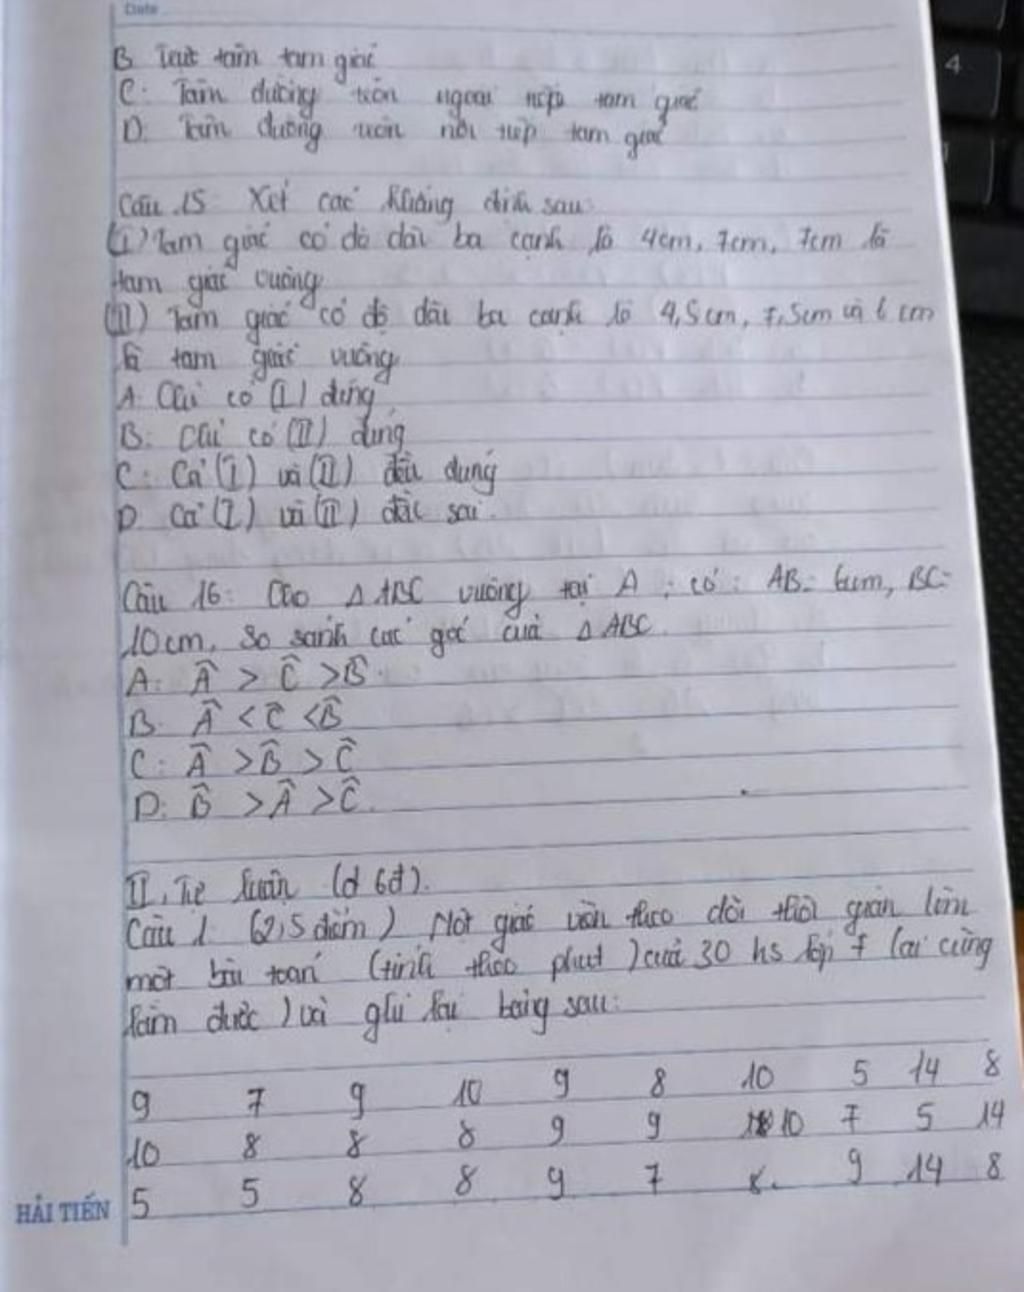 Date
B. Trực tâm tam giác
C: Tâm đường tròn ngoại tiếp tam giác
D: Tâm đường tròn nội tiếp tam giác
Câu 15: Xét các khẳng định sau:
(I) Tam giác có độ dài ba cạnh là 4cm, 7cm, 7cm là
tam giác vuông
(II) Tam giác có độ dài ba cạnh là 4,5cm, 7,5cm và 6cm
là tam giác vuông
A. Chỉ có (I) đúng
B: Chỉ có (II) đúng
C: Cả (I) và (II) đều đúng
D. Cả (I) và (II) đều sai.
Câu 16: Cho Δ ABC vuông tại A ; có : AB = 6cm, BC =
10cm, so sánh các góc của Δ ABC.
A: Â > Ĉ > B̂.
B. Â < Ĉ < B̂
C: Â > B̂ > Ĉ
D: B̂ > Â > Ĉ.
II, Tự luận (đ 6đ).
Câu 1: (2,5 điểm) Một giáo viên theo dõi thời gian làm
một bài toán (tính theo phút) của 30 hs lớp 7 (ai cũng
làm được) và ghi lại bảng sau:
9 7 9 10 9 8 10 5 14 8
10 8 8 8 9 9 10 7 5 14
5 5 8 8 9 7 8. 9 14 8
HẢI TIẾN
4